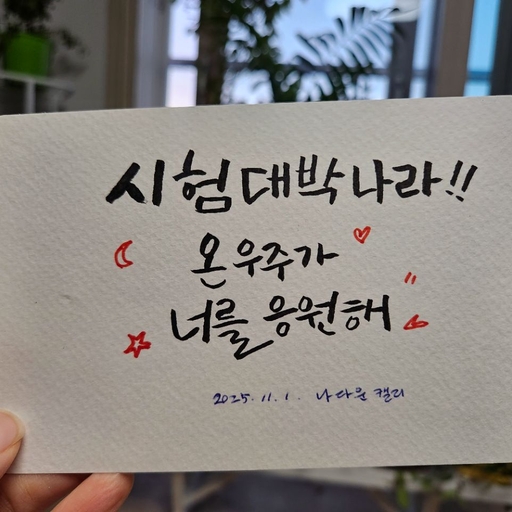 시험 대박 나라!!
온 우주가
너를 응원해
2025. 11. 1. 나다움 캘리